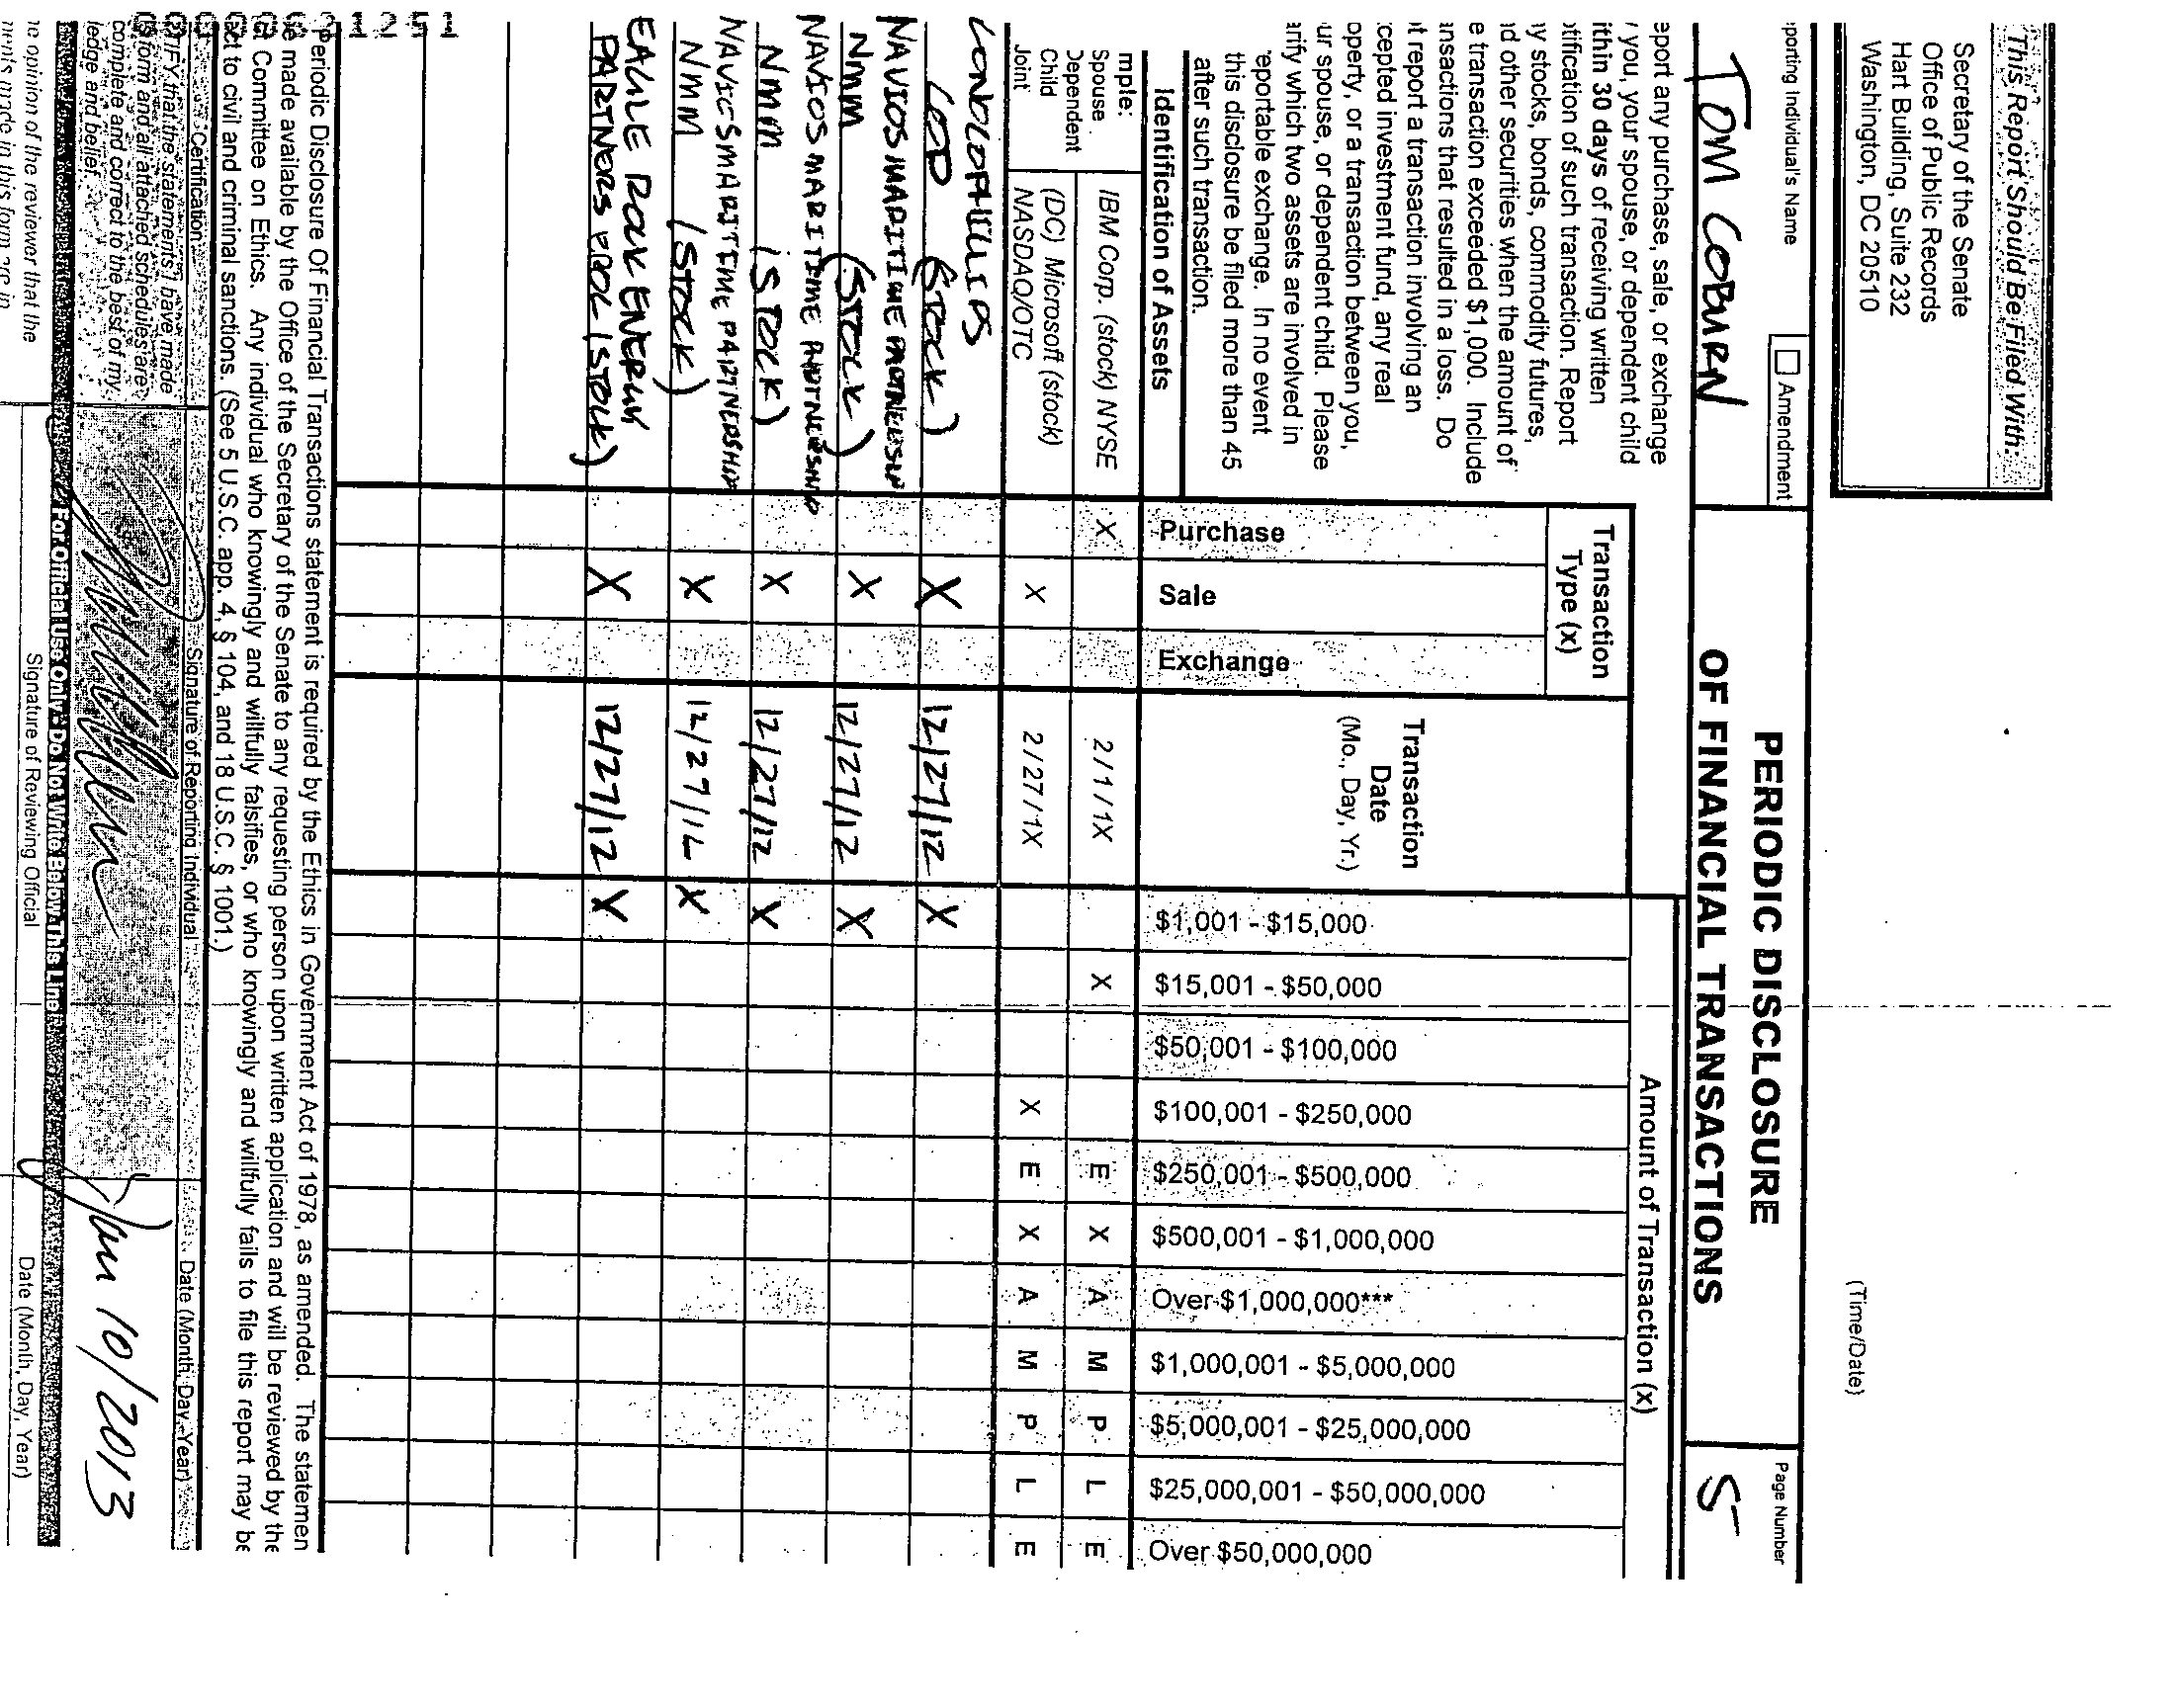 This Report Should Be Filed With:
Secretary of the Senate
Office of Public Records
Hart Building, Suite 232
Washington, DC 20510
(Time/Date)
porting Individual's Name
Amendment
TOM COBURN
PERIODIC DISCLOSURE
OF FINANCIAL TRANSACTIONS
Page Number
5
eport any purchase, sale, or exchange
you, your spouse, or dependent child
ithin 30 days of receiving written
otification of such transaction. Report
ny stocks, bonds, commodity futures,
nd other securities when the amount of
e transaction exceeded $1,000. Include
ansactions that resulted in a loss. Do
ot report a transaction involving an
cepted investment fund, any real
operty, or a transaction between you,
ur spouse, or dependent child. Please
arify which two assets are involved in
reportable exchange. In no event
this disclosure be filed more than 45
after such transaction.
Identification of Assets
Transaction
Type (x)
Purchase
Sale
Exchange
Transaction
Date
(Mo., Day, Yr.)
Amount of Transaction (x)
$1,001 - $15,000
$15,001 - $50,000
$50,001 - $100,000
$100,001 - $250,000
$250,001 - $500,000
$500,001 - $1,000,000
Over $1,000,000***
$1,000,001 - $5,000,000
$5,000,001 - $25,000,000
$25,000,001 - $50,000,000
Over $50,000,000
mple:
Spouse
Dependent
Child
Joint
IBM Corp. (stock) NYSE X 2/1/1X X E X A M P L E
(DC) Microsoft (stock)
NASDAQ/OTC X 2/27/1X X E X A M P L E
CONOCOPHILLIPS
COP (STOCK) X 12/27/12 X
NAVIOS MARITIME PARTNERSH
NMM (STOCK) X 12/27/12 X
NAVIOS MARITIME PARTNERSHIP
NMM (STOCK) X 12/27/12 X
NAVIOS MARITIME PARTNERSHIP
NMM (STOCK) X 12/27/12 X
EAGLE ROCK ENERGY
PARTNERS EROC (STOCK) X 12/27/12 X
Periodic Disclosure Of Financial Transactions statement is required by the Ethics in Government Act of 1978, as amended. The statemen
e made available by the Office of the Secretary of the Senate to any requesting person upon written application and will be reviewed by the
t Committee on Ethics. Any individual who knowingly and willfully falsifies, or who knowingly and willfully fails to file this report may be
ect to civil and criminal sanctions. (See 5 U.S.C. app. 4, § 104, and 18 U.S.C. § 1001.)
Certification
Signature of Reporting Individual
Date (Month, Day, Year)
TIFY that the statements I have made
is form and all attached schedules are
complete and correct to the best of my
ledge and belief.
Jan 10/2013
For Official Use Only - Do Not Write Below This Line
he opinion of the reviewer that the
ments made in this form are in
Signature of Reviewing Official
Date (Month, Day, Year)